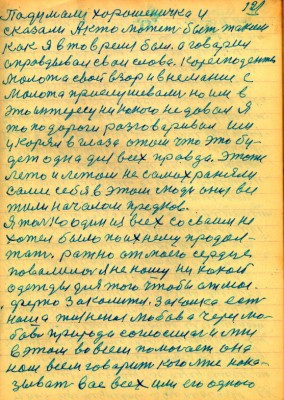 121
Падумали хорошеничко и
сказали А кто может быт таким
как я в то время был, а говарил
оправдывал свои слова. Кореспонденты
молота свой взор и внемание с
молота прислушивалис но им в
это интересу ни какого не давал Я
по дороги разговаривал им
укорял в глаза о том что это бу-
дет одна для всех правда. Этоже
лето и
сами себя в этом люди они вси
жили началом предков.
Я толко один из всех со своими не
хотел было по ихнему продол-
жат. ражно от моего сердца
повалилос я не ношу ни какой
одежды для того чтобы
Закалка ест
наша жизнена любов а через лю-
бов природа
в этом во всем помогает она
нам всем говарит кого мне нака-
зыват Вас всех или его одного